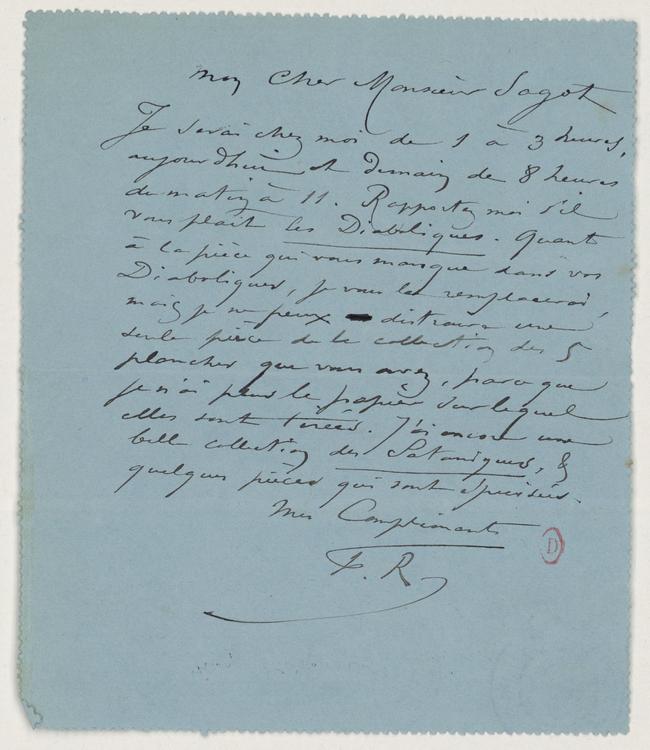 Mon Cher Monsieur Sagot
Je serai chez moi de 1 à 3 heures,
aujourdhui et demain de 8 heures
du matin à 11. Rapportez moi s'il
vous plait les Diaboliques. Quant
à la pièce qui vous manque dans vos
Diaboliques, je vous la remplacerai,
mais je ne peux distraire une
seule pièce de la collection des 5
planches que vous avez, parce que
je n'ai plus le papier sur lequel
elles sont tirées. J'ai encore une
belle collection des Sataniques, &
quelques pièces qui sont épuisées.
Mes Compliments
F. R
D